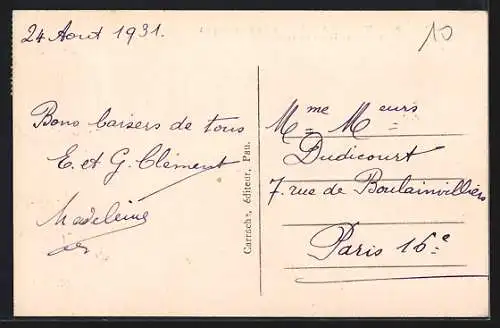 24 Aout 1931.
10
Bons baisers de tous
E. et G. Clément
Madeleine
Carrache, éditeur, Pau.
Mme Meurs
Dudicourt
7. rue de Boulainvilliers
Paris 16e